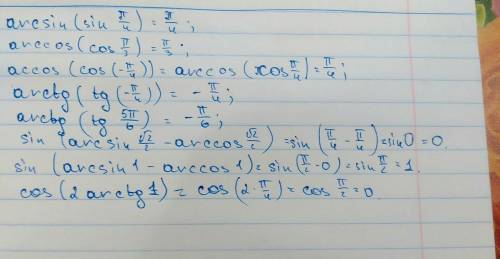 arcsin(sin π/4) = π/4;
arccos(cos π/3) = π/3;
accos(cos(-π/4)) = arccos(cos π/4) = π/4;
arctg(tg(-π/4)) = -π/4;
arctg(tg 5π/6) = -π/6;
sin(arcsin √2/2 - arccos √2/2) = sin(π/4 - π/4) = sin0 = 0.
sin(arcsin1 - arccos1) = sin(π/2 - 0) = sin π/2 = 1.
cos(2arctg1) = cos(2·π/4) = cos π/2 = 0.